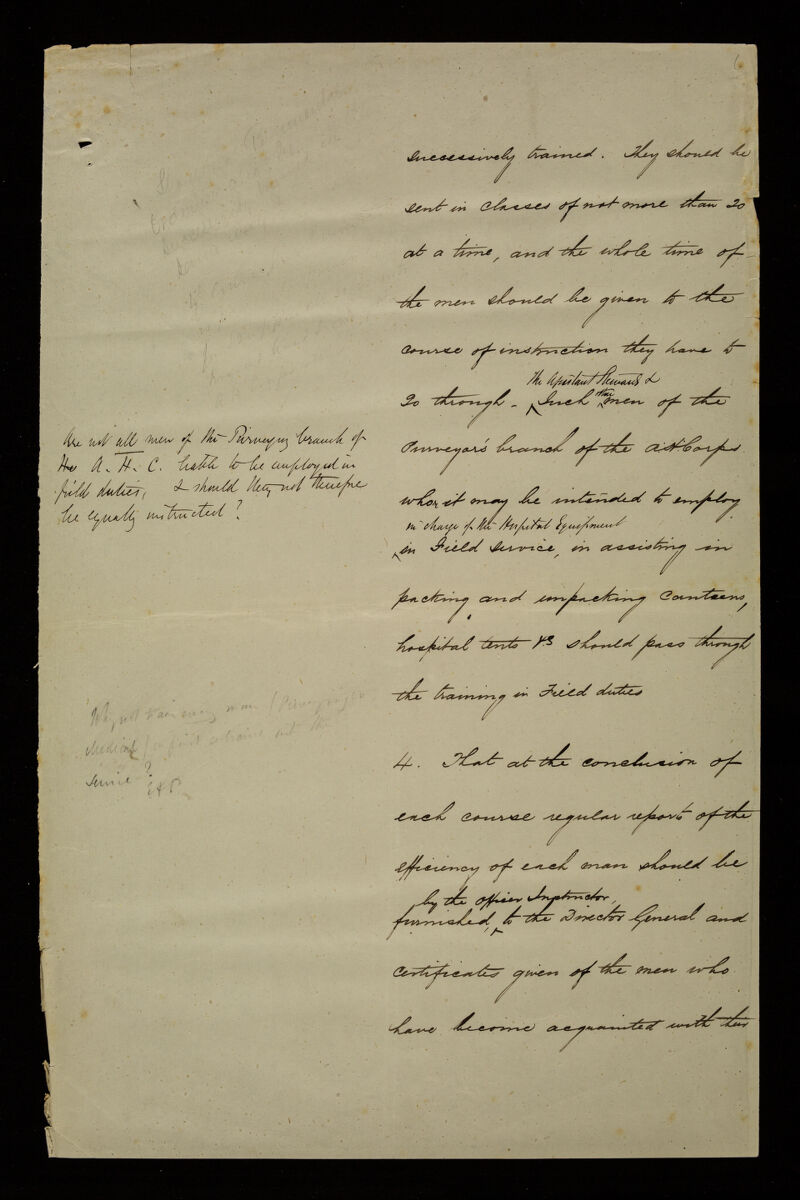 successively trained. They should be
sent in classes of not more than 20
at a time, and the whole time of
the men should be given to the
course of instruction they have to
the Assistant Stewards &
go through - Such men of the
Purveyor's branch of the A H Corps
who it may be intended to employ
in charge of the Hospital Equipment
in Field service, in assisting in
packing and unpacking Canteens,
hospital tents &c should pass through
the training in Field duties
4. That at the conclusion of
each course regular reports of the
efficiency of each man should be
by the officer Instructor,
furnished, to the Director General and
certificates given of the men who
have become acquainted with their
Are not all men of the Purveying branch of
the A. H. C. liable to be employed in
field duties, & should they not therefore
be equally instructed?
Why not train every man (Purveying or
Medical) on first entrance into the
service?